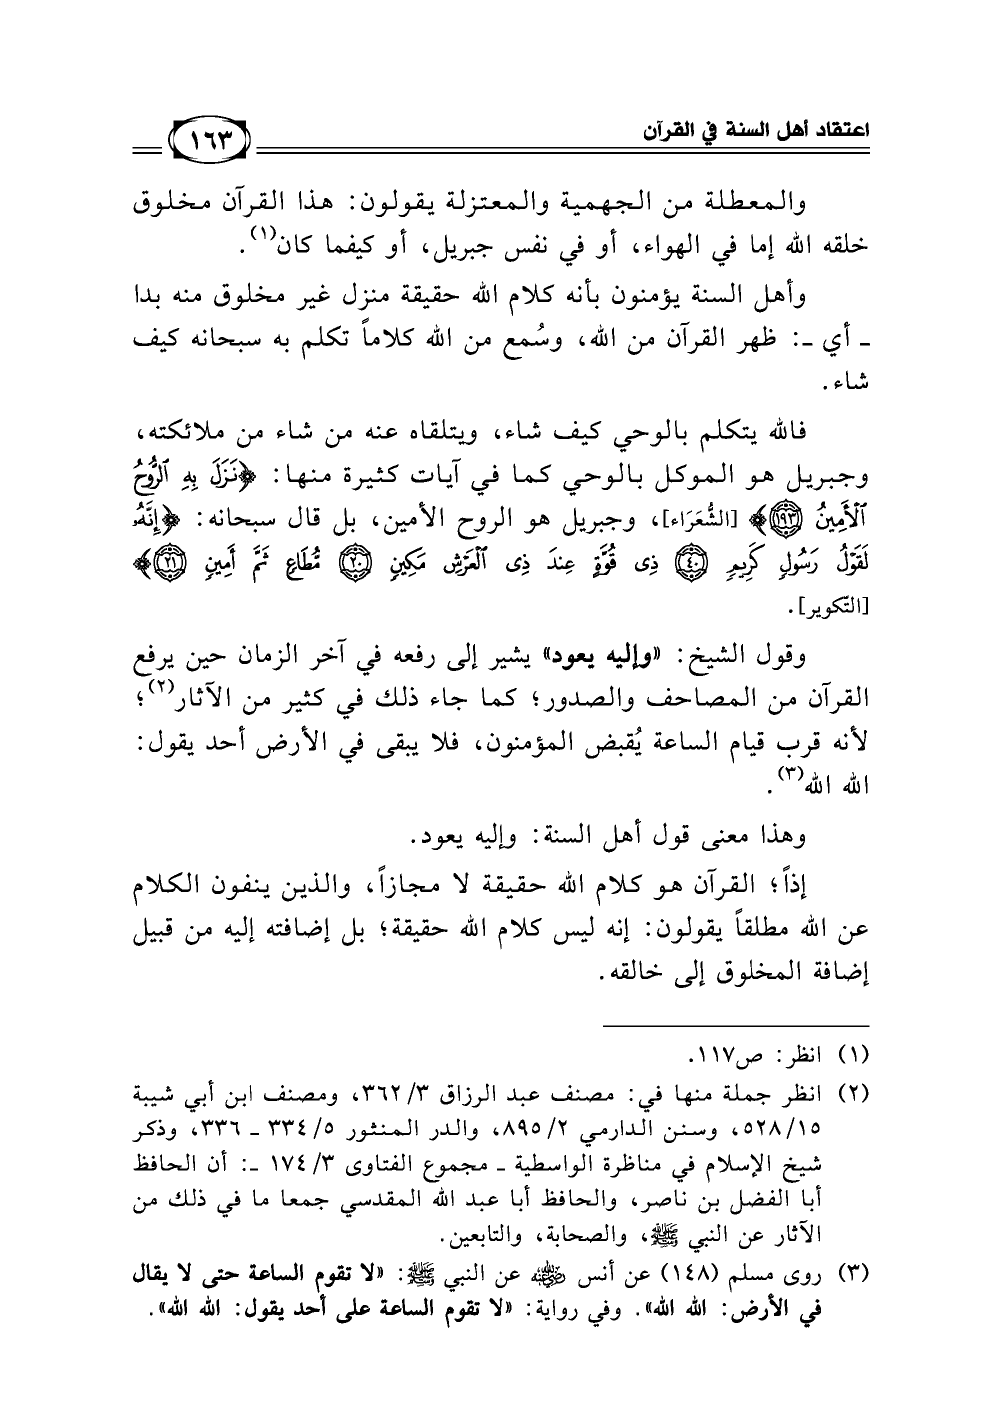 اعتقاد أهل السنة في القرآن
١٦٣
والمعطلة من الجهمية والمعتزلة يقولون: هذا القرآن مخلوق
خلقه الله إما في الهواء، أو في نفس جبريل، أو كيفما كان(١).
وأهل السنة يؤمنون بأنه كلام الله حقيقة منزل غير مخلوق منه بدا
ـ أي ـ: ظهر القرآن من الله، وسُمع من الله كلاماً تكلم به سبحانه كيف
شاء.
فالله يتكلم بالوحي كيف شاء، ويتلقاه عنه من شاء من ملائكته،
وجبريل هو الموكل بالوحي كما في آيات كثيرة منها: ﴿نَزَلَ بِهِ ٱلرُّوحُ
ٱلْأَمِينُ ١٩٣﴾ [الشُّعَرَاء]، وجبريل هو الروح الأمين، بل قال سبحانه: ﴿إِنَّهُۥ
لَقَوْلُ رَسُولٍ كَرِيمٍ ٤٠ ذِى قُوَّةٍ عِندَ ذِى ٱلْعَرْشِ مَكِينٍ ٢٠ مُّطَاعٍ ثَمَّ أَمِينٍ ٢١﴾
[التّكوير].
وقول الشيخ: «وإليه يعود» يشير إلى رفعه في آخر الزمان حين يرفع
القرآن من المصاحف والصدور؛ كما جاء ذلك في كثير من الآثار(٢)؛
لأنه قرب قيام الساعة يُقبض المؤمنون، فلا يبقى في الأرض أحد يقول:
الله الله(٣).
وهذا معنى قول أهل السنة: وإليه يعود.
إذاً؛ القرآن هو كلام الله حقيقة لا مجازاً، والذين ينفون الكلام
عن الله مطلقاً يقولون: إنه ليس كلام الله حقيقة؛ بل إضافته إليه من قبيل
إضافة المخلوق إلى خالقه.
(١) انظر: ص١١٧.
(٢) انظر جملة منها في: مصنف عبد الرزاق ٣/ ٣٦٢، ومصنف ابن أبي شيبة
١٥/ ٥٢٨، وسنن الدارمي ٢/ ٨٩٥، والدر المنثور ٥/ ٣٣٤ ـ ٣٣٦، وذكر
شيخ الإسلام في مناظرة الواسطية ـ مجموع الفتاوى ٣/ ١٧٤ ـ: أن الحافظ
أبا الفضل بن ناصر، والحافظ أبا عبد الله المقدسي جمعا ما في ذلك من
الآثار عن النبي ﷺ، والصحابة، والتابعين.
(٣) روى مسلم (١٤٨) عن أنس رضي الله عنه عن النبي ﷺ: «لا تقوم الساعة حتى لا يقال
في الأرض: الله الله». وفي رواية: «لا تقوم الساعة على أحد يقول: الله الله».